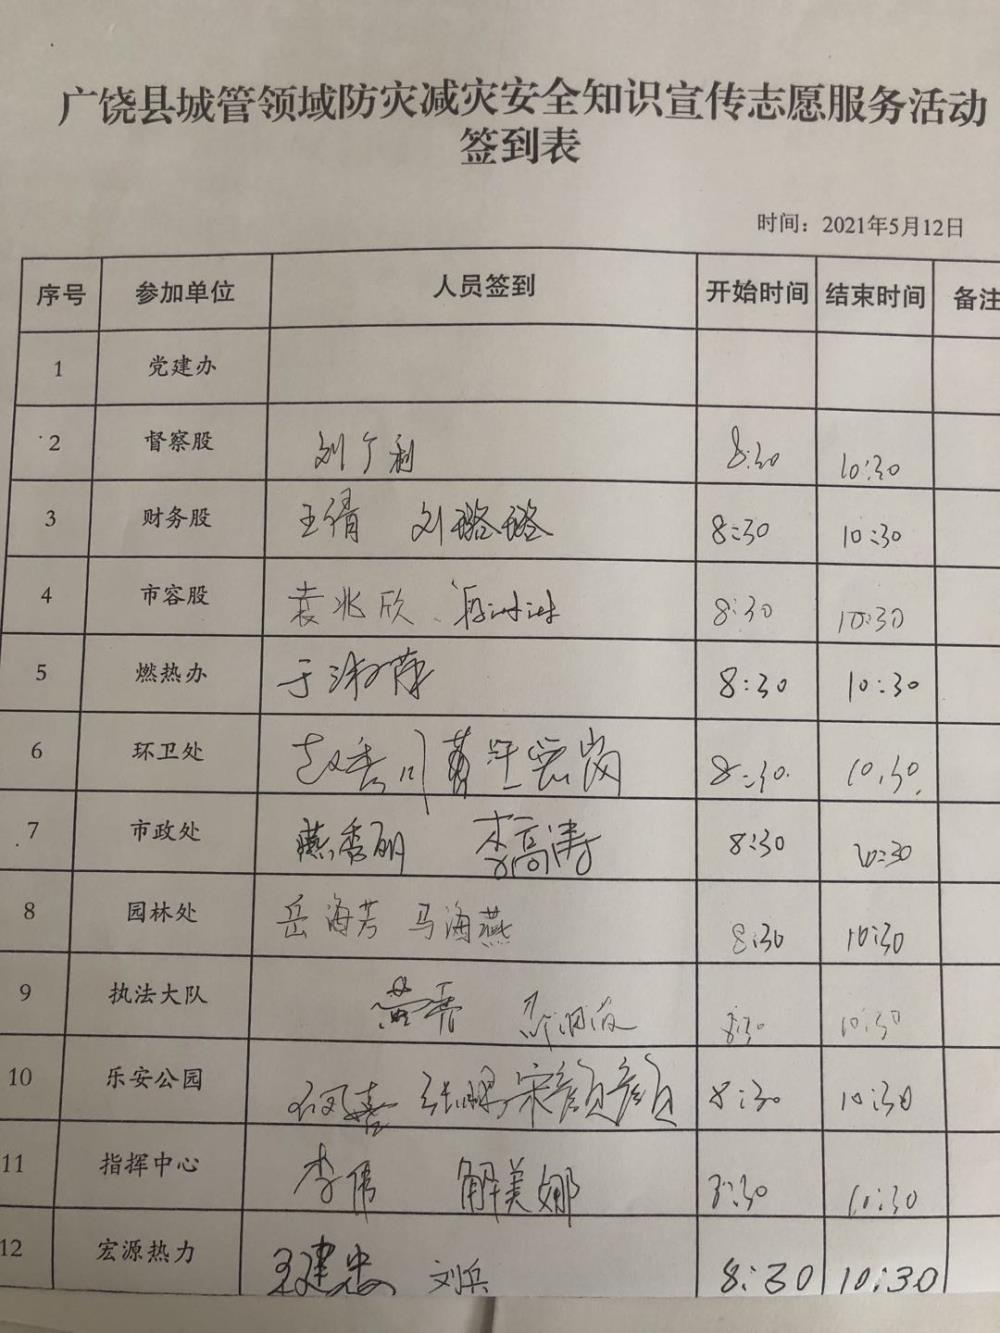 广饶县城管领域防灾减灾安全知识宣传志愿服务活动
签到表
时间：2021年5月12日
序号 参加单位 人员签到 开始时间 结束时间 备注
1 党建办
2 督察股 刘广利 8:30 10:30
3 财务股 王倩 刘璐璐 8:30 10:30
4 市容股 袁兆欣、 8:30 10:30
5 燃热办 于淑萍 8:30 10:30
6 环卫处 8:30 10:30
7 市政处 燕秀丽 李高涛 8:30 10:30
8 园林处 岳海芳 马海燕 8:30 10:30
9 执法大队 8:30 10:30
10 乐安公园 宋颜颜 8:30 10:30
11 指挥中心 李伟 解美娜 8:30 10:30
12 宏源热力 王建忠 刘兵 8:30 10:30